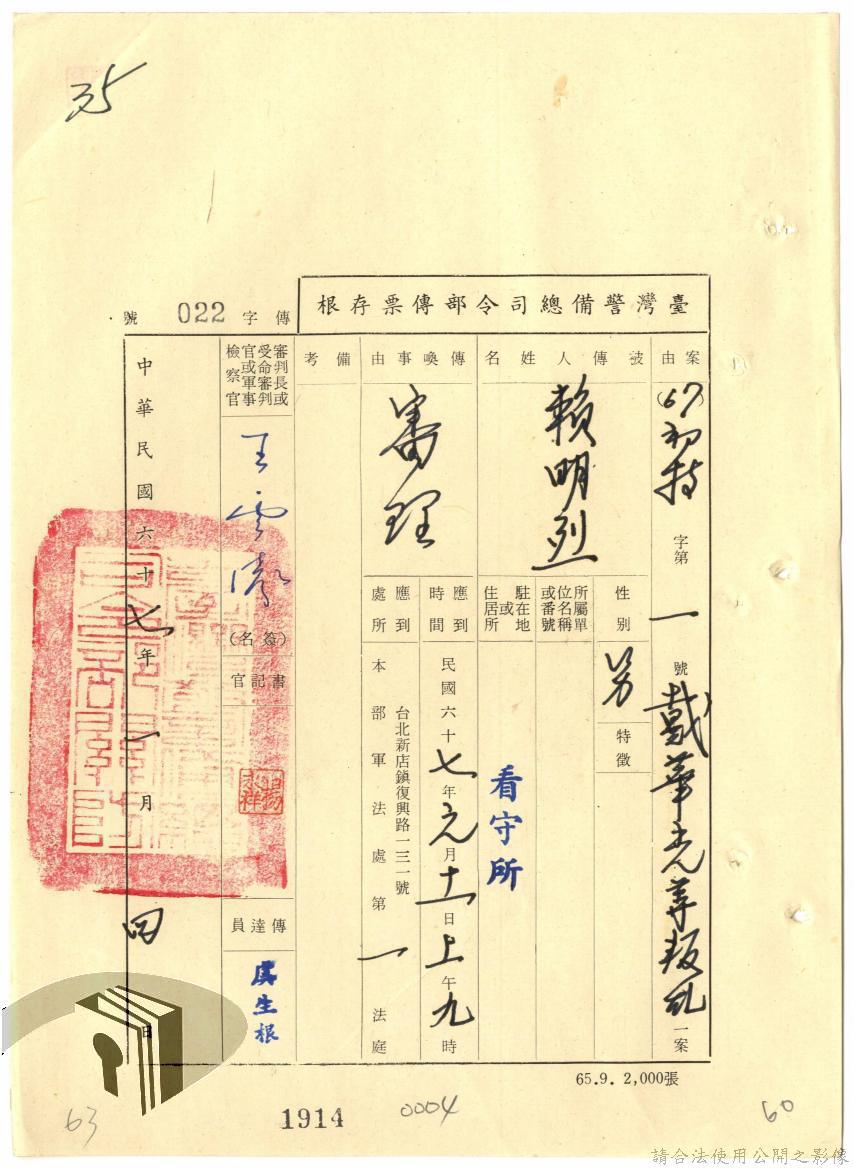 35
臺灣警備總司令部傳票存根
案由
(67)初特字第一號戴華光等叛亂一案
被傳人姓名
賴明烈
性別
男
特徵
所屬單位名稱或番號
駐在地或住居所
看守所
傳喚事由
審理
應到時間
民國六十七年元月十一日上午九時
應到處所
台北新店鎮復興路一三一號
本部軍法處第一法庭
備考
傳字 022 號
審判長或受命審判官或軍事檢察官
王雲濤
(簽名)
書記官
楊永祥
傳達員
虞生根
中華民國六十七年一月四日
65.9. 2,000張
63
1914
0004
60
請合法使用公開之影像